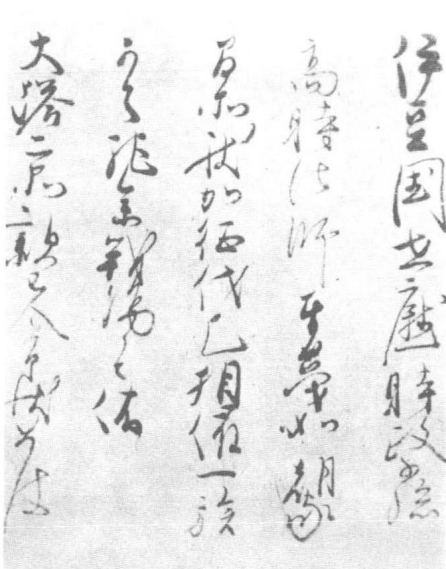 伊豆国在廳時政子孫
高時法師等蔑如朝家
間所被加征伐也相催一族
可令馳参戦場之由
大塔二品親王令旨